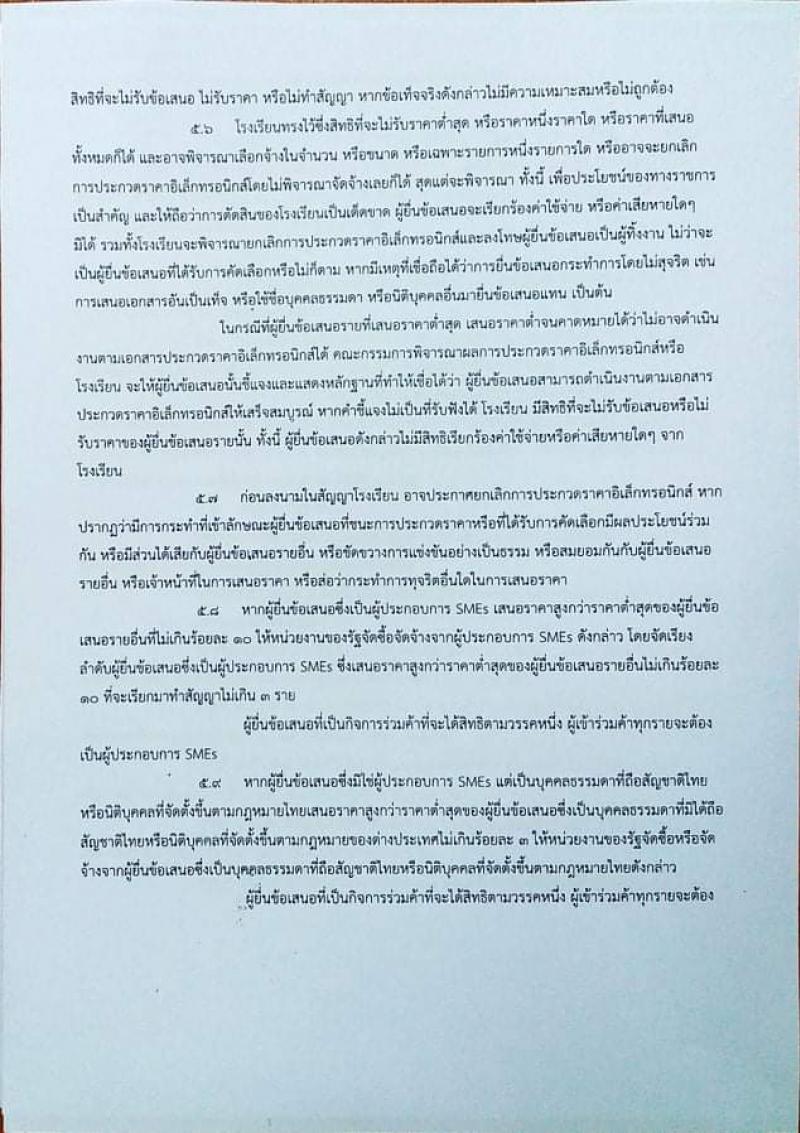 สิทธิที่จะไม่รับข้อเสนอ ไม่รับราคา หรือไม่ทำสัญญา หากข้อเท็จจริงดังกล่าวไม่มีความเหมาะสมหรือไม่ถูกต้อง
๕.๖ โรงเรียนทรงไว้ซึ่งสิทธิที่จะไม่รับราคาต่ำสุด หรือราคาหนึ่งราคาใด หรือราคาที่เสนอ
ทั้งหมดก็ได้ และอาจพิจารณาเลือกจ้างในจำนวน หรือขนาด หรือเฉพาะรายการหนึ่งรายการใด หรืออาจจะยกเลิก
การประกวดราคาอิเล็กทรอนิกส์โดยไม่พิจารณาจัดจ้างเลยก็ได้ สุดแต่จะพิจารณา ทั้งนี้ เพื่อประโยชน์ของทางราชการ
เป็นสำคัญ และให้ถือว่าการตัดสินของโรงเรียนเป็นเด็ดขาด ผู้ยื่นข้อเสนอจะเรียกร้องค่าใช้จ่าย หรือค่าเสียหายใดๆ
มิได้ รวมทั้งโรงเรียนจะพิจารณายกเลิกการประกวดราคาอิเล็กทรอนิกส์และลงโทษผู้ยื่นข้อเสนอเป็นผู้ทิ้งงาน ไม่ว่าจะ
เป็นผู้ยื่นข้อเสนอที่ได้รับการคัดเลือกหรือไม่ก็ตาม หากมีเหตุที่เชื่อถือได้ว่าการยื่นข้อเสนอกระทำการโดยไม่สุจริต เช่น
การเสนอเอกสารอันเป็นเท็จ หรือใช้ชื่อบุคคลธรรมดา หรือนิติบุคคลอื่นมายื่นข้อเสนอแทน เป็นต้น
ในกรณีที่ผู้ยื่นข้อเสนอรายที่เสนอราคาต่ำสุด เสนอราคาต่ำจนคาดหมายได้ว่าไม่อาจดำเนิน
งานตามเอกสารประกวดราคาอิเล็กทรอนิกส์ได้ คณะกรรมการพิจารณาผลการประกวดราคาอิเล็กทรอนิกส์หรือ
โรงเรียน จะให้ผู้ยื่นข้อเสนอนั้นชี้แจงและแสดงหลักฐานที่ทำให้เชื่อได้ว่า ผู้ยื่นข้อเสนอสามารถดำเนินงานตามเอกสาร
ประกวดราคาอิเล็กทรอนิกส์ให้เสร็จสมบูรณ์ หากคำชี้แจงไม่เป็นที่รับฟังได้ โรงเรียน มีสิทธิที่จะไม่รับข้อเสนอหรือไม่
รับราคาของผู้ยื่นข้อเสนอรายนั้น ทั้งนี้ ผู้ยื่นข้อเสนอดังกล่าวไม่มีสิทธิเรียกร้องค่าใช้จ่ายหรือค่าเสียหายใดๆ จาก
โรงเรียน
๕.๗ ก่อนลงนามในสัญญาโรงเรียน อาจประกาศยกเลิกการประกวดราคาอิเล็กทรอนิกส์ หาก
ปรากฏว่ามีการกระทำที่เข้าลักษณะผู้ยื่นข้อเสนอที่ชนะการประกวดราคาหรือที่ได้รับการคัดเลือกมีผลประโยชน์ร่วม
กัน หรือมีส่วนได้เสียกับผู้ยื่นข้อเสนอรายอื่น หรือขัดขวางการแข่งขันอย่างเป็นธรรม หรือสมยอมกันกับผู้ยื่นข้อเสนอ
รายอื่น หรือเจ้าหน้าที่ในการเสนอราคา หรือส่อว่ากระทำการทุจริตอื่นใดในการเสนอราคา
๕.๘ หากผู้ยื่นข้อเสนอซึ่งเป็นผู้ประกอบการ SMEs เสนอราคาสูงกว่าราคาต่ำสุดของผู้ยื่นข้อ
เสนอรายอื่นที่ไม่เกินร้อยละ ๑๐ ให้หน่วยงานของรัฐจัดซื้อจัดจ้างจากผู้ประกอบการ SMEs ดังกล่าว โดยจัดเรียง
ลำดับผู้ยื่นข้อเสนอซึ่งเป็นผู้ประกอบการ SMEs ซึ่งเสนอราคาสูงกว่าราคาต่ำสุดของผู้ยื่นข้อเสนอรายอื่นไม่เกินร้อยละ
๑๐ ที่จะเรียกมาทำสัญญาไม่เกิน ๓ ราย
ผู้ยื่นข้อเสนอที่เป็นกิจการร่วมค้าที่จะได้สิทธิตามวรรคหนึ่ง ผู้เข้าร่วมค้าทุกรายจะต้อง
เป็นผู้ประกอบการ SMEs
๕.๙ หากผู้ยื่นข้อเสนอซึ่งมิใช่ผู้ประกอบการ SMEs แต่เป็นบุคคลธรรมดาที่ถือสัญชาติไทย
หรือนิติบุคคลที่จัดตั้งขึ้นตามกฎหมายไทยเสนอราคาสูงกว่าราคาต่ำสุดของผู้ยื่นข้อเสนอซึ่งเป็นบุคคลธรรมดาที่มิได้ถือ
สัญชาติไทยหรือนิติบุคคลที่จัดตั้งขึ้นตามกฎหมายของต่างประเทศไม่เกินร้อยละ ๓ ให้หน่วยงานของรัฐจัดซื้อหรือจัด
จ้างจากผู้ยื่นข้อเสนอซึ่งเป็นบุคคลธรรมดาที่ถือสัญชาติไทยหรือนิติบุคคลที่จัดตั้งขึ้นตามกฎหมายไทยดังกล่าว
ผู้ยื่นข้อเสนอที่เป็นกิจการร่วมค้าที่จะได้สิทธิตามวรรคหนึ่ง ผู้เข้าร่วมค้าทุกรายจะต้อง